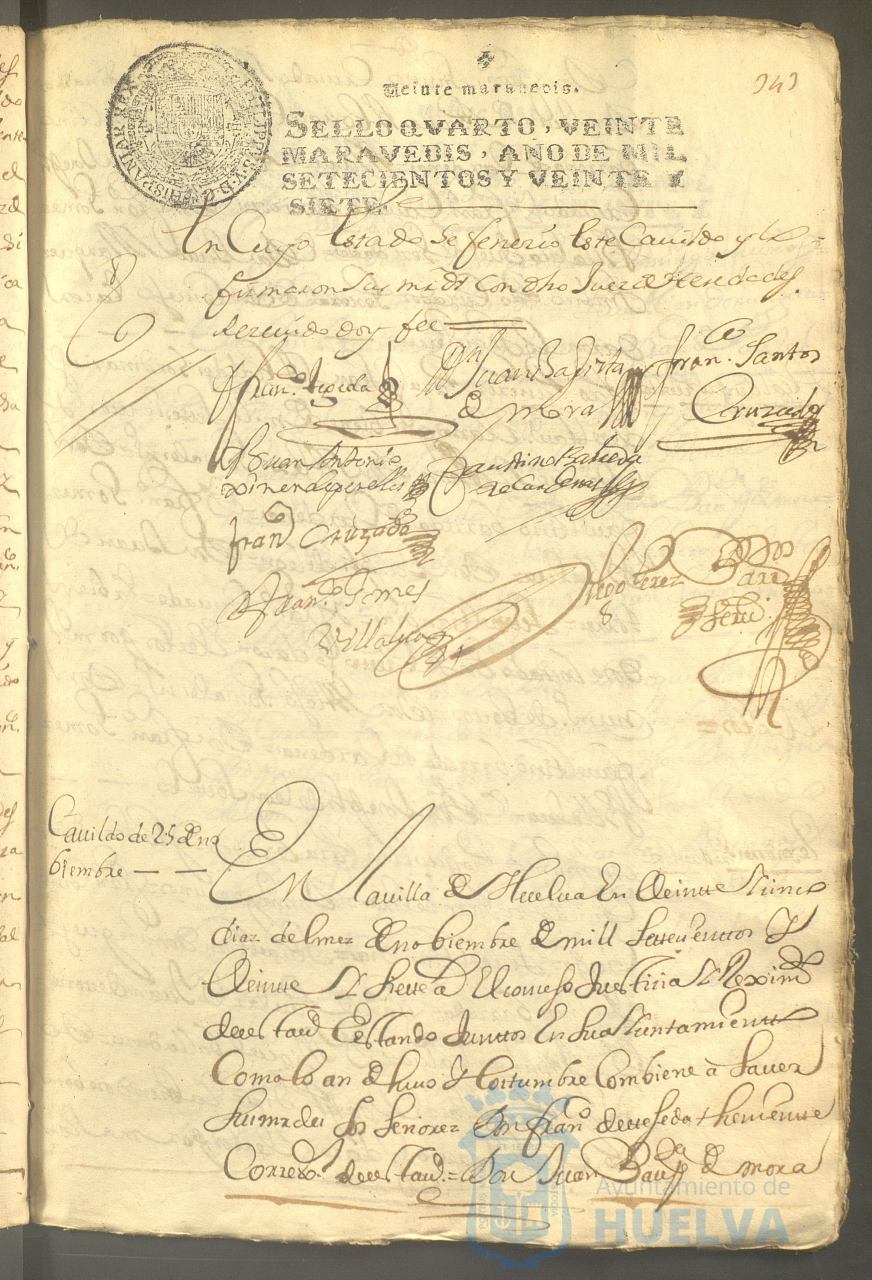 343
Veinte maravedis.
SELLO QVARTO, VEINTE
MARAVEDIS, AÑO DE MIL
SETECIENTOS Y VEINTE Y
SIETE.
En Cuyo Estado se fenecio Este Cavildo y lo
firmaron sus mrds Con dho Juez de Heredades
doy fee
Juan Baptista
de mora
Fran.co Santos
Cruzado
Juan Antonio
Faustino
de Cardenas
Fran.co Cruzado
Fran.co Gomes
Perez
Cauildo de 25 de no
biembre
En la uilla de Huelua En Veintte Y sinco
diaz del mez de nobiembre de mill settecienttos Y
Veintte Y siette a El consejo Justicia Y Reximto
de estta Va Estando Junttos En su Ayuntamientto
Como lo an de huso Y Costumbre Combiene à Sauer
Sus mrdes los señorez Don Fran.co de tteseda theniente
Correxor de estta Va = Don Juan Bauptta de mora
Ayuntamiento de
HUELVA